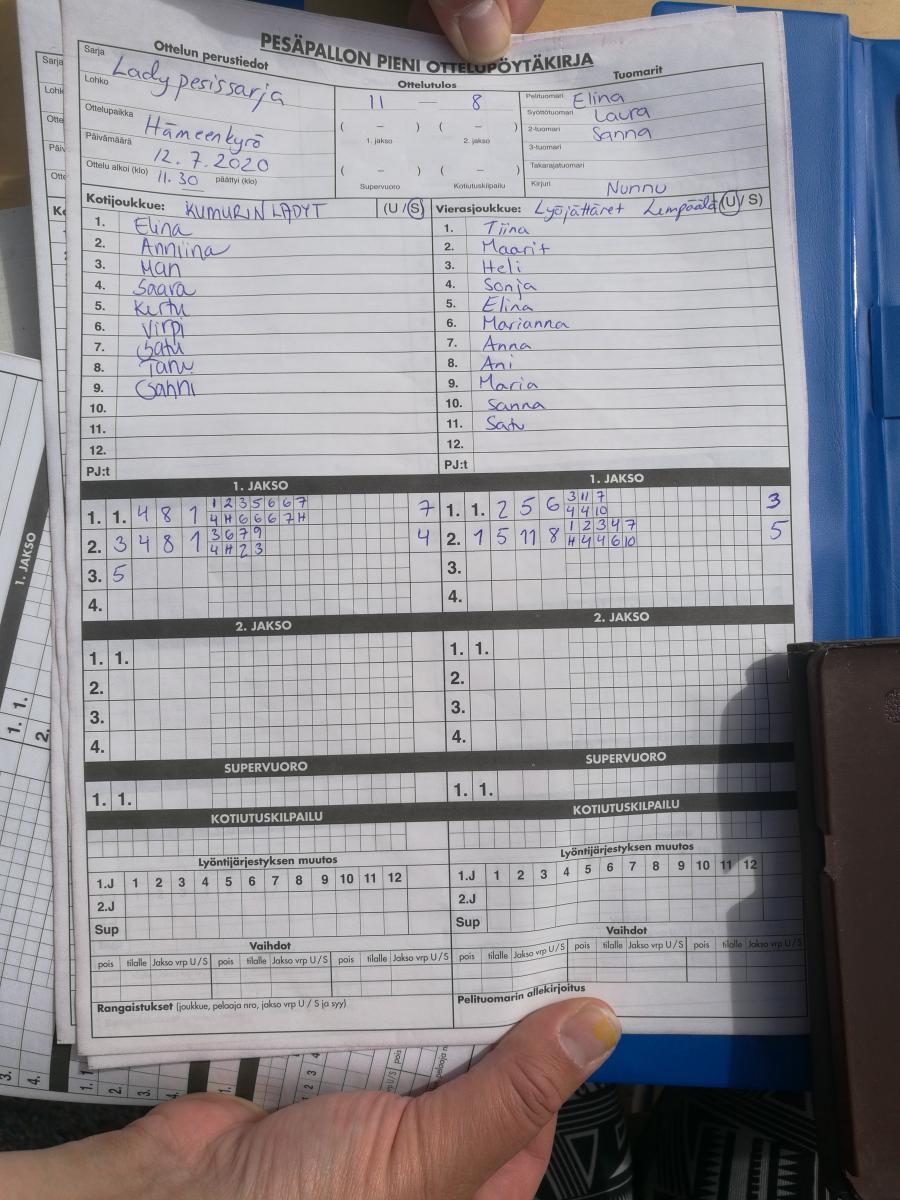 PESÄPALLON PIENI OTTELUPÖYTÄKIRJA
Ottelun perustiedot
Sarja Lady pesissarja
Lohko
Ottelupaikka Hämeenkyrö
Päivämäärä 12.7.2020
Ottelu alkoi (klo) 11.30 päättyi (klo)
Ottelutulos
11 — 8
( – ) ( – )
1. jakso 2. jakso
( – ) ( – )
Supervuoro Kotiutuskilpailu
Tuomarit
Pelituomari Elina
Syöttötuomari Laura
2-tuomari Sanna
3-tuomari
Takarajatuomari
Kirjuri Nunnu
Kotijoukkue: KUMURIN LADYT (U/S)
1. Elina
2. Anniina
3. Mari
4. Saara
5. Kerttu
6. Virpi
7. Satu
8. Taru
9. Sanni
10.
11.
12.
PJ:t
Vierasjoukkue: Lyöjättäret Lempäälä (U/S)
1. Tiina
2. Maarit
3. Heli
4. Sonja
5. Elina
6. Marianna
7. Anna
8. Ani
9. Maria
10. Sanna
11. Satu
12.
PJ:t
1. JAKSO
1 2 3 5 6 6 7
1. 1. 4 8 1 7
4 H 6 6 6 7 H
3 6 7 9
2. 3 4 8 1 4
4 H 2 3
3. 5
4.
1. JAKSO
3 11 7
1. 1. 2 5 6 3
4 4 10
1 2 3 4 7
2. 1 5 11 8 5
H 4 4 6 10
3.
4.
2. JAKSO
1. 1.
2.
3.
4.
2. JAKSO
1. 1.
2.
3.
4.
SUPERVUORO
1. 1.
SUPERVUORO
1. 1.
KOTIUTUSKILPAILU
KOTIUTUSKILPAILU
Lyöntijärjestyksen muutos
1.J 1 2 3 4 5 6 7 8 9 10 11 12
2.J
Sup
Lyöntijärjestyksen muutos
1.J 1 2 3 4 5 6 7 8 9 10 11 12
2.J
Sup
Vaihdot
pois tilalle Jakso vrp U/S pois tilalle Jakso vrp U/S pois tilalle Jakso vrp U/S
Vaihdot
pois tilalle Jakso vrp U/S pois tilalle Jakso vrp U/S pois tilalle Jakso vrp U/S
Rangaistukset (joukkue, pelaaja nro, jakso vrp U / S ja syy)
Pelituomarin allekirjoitus